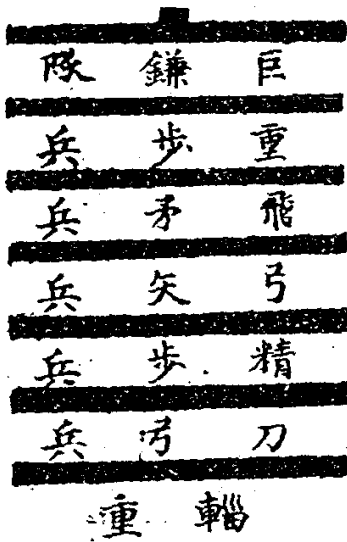 巨鎌隊
重步兵
飛矛兵
弓矢兵
精步兵
刀弓兵
輜重